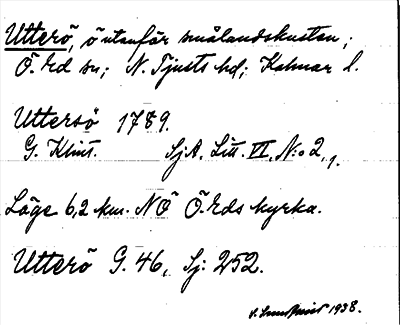 Utterö, ö utanför smålandskusten;
Ö. Ed sn; N. Tjusts hd; Kalmar l.
Uttersö 1789.
G. Klint. SjA, Litt. VI, N:o 2, 1.
Läge 6,2 km. NÖ Ö. Eds kyrka.
Utterö G. 46, Sj: 252.
1938.